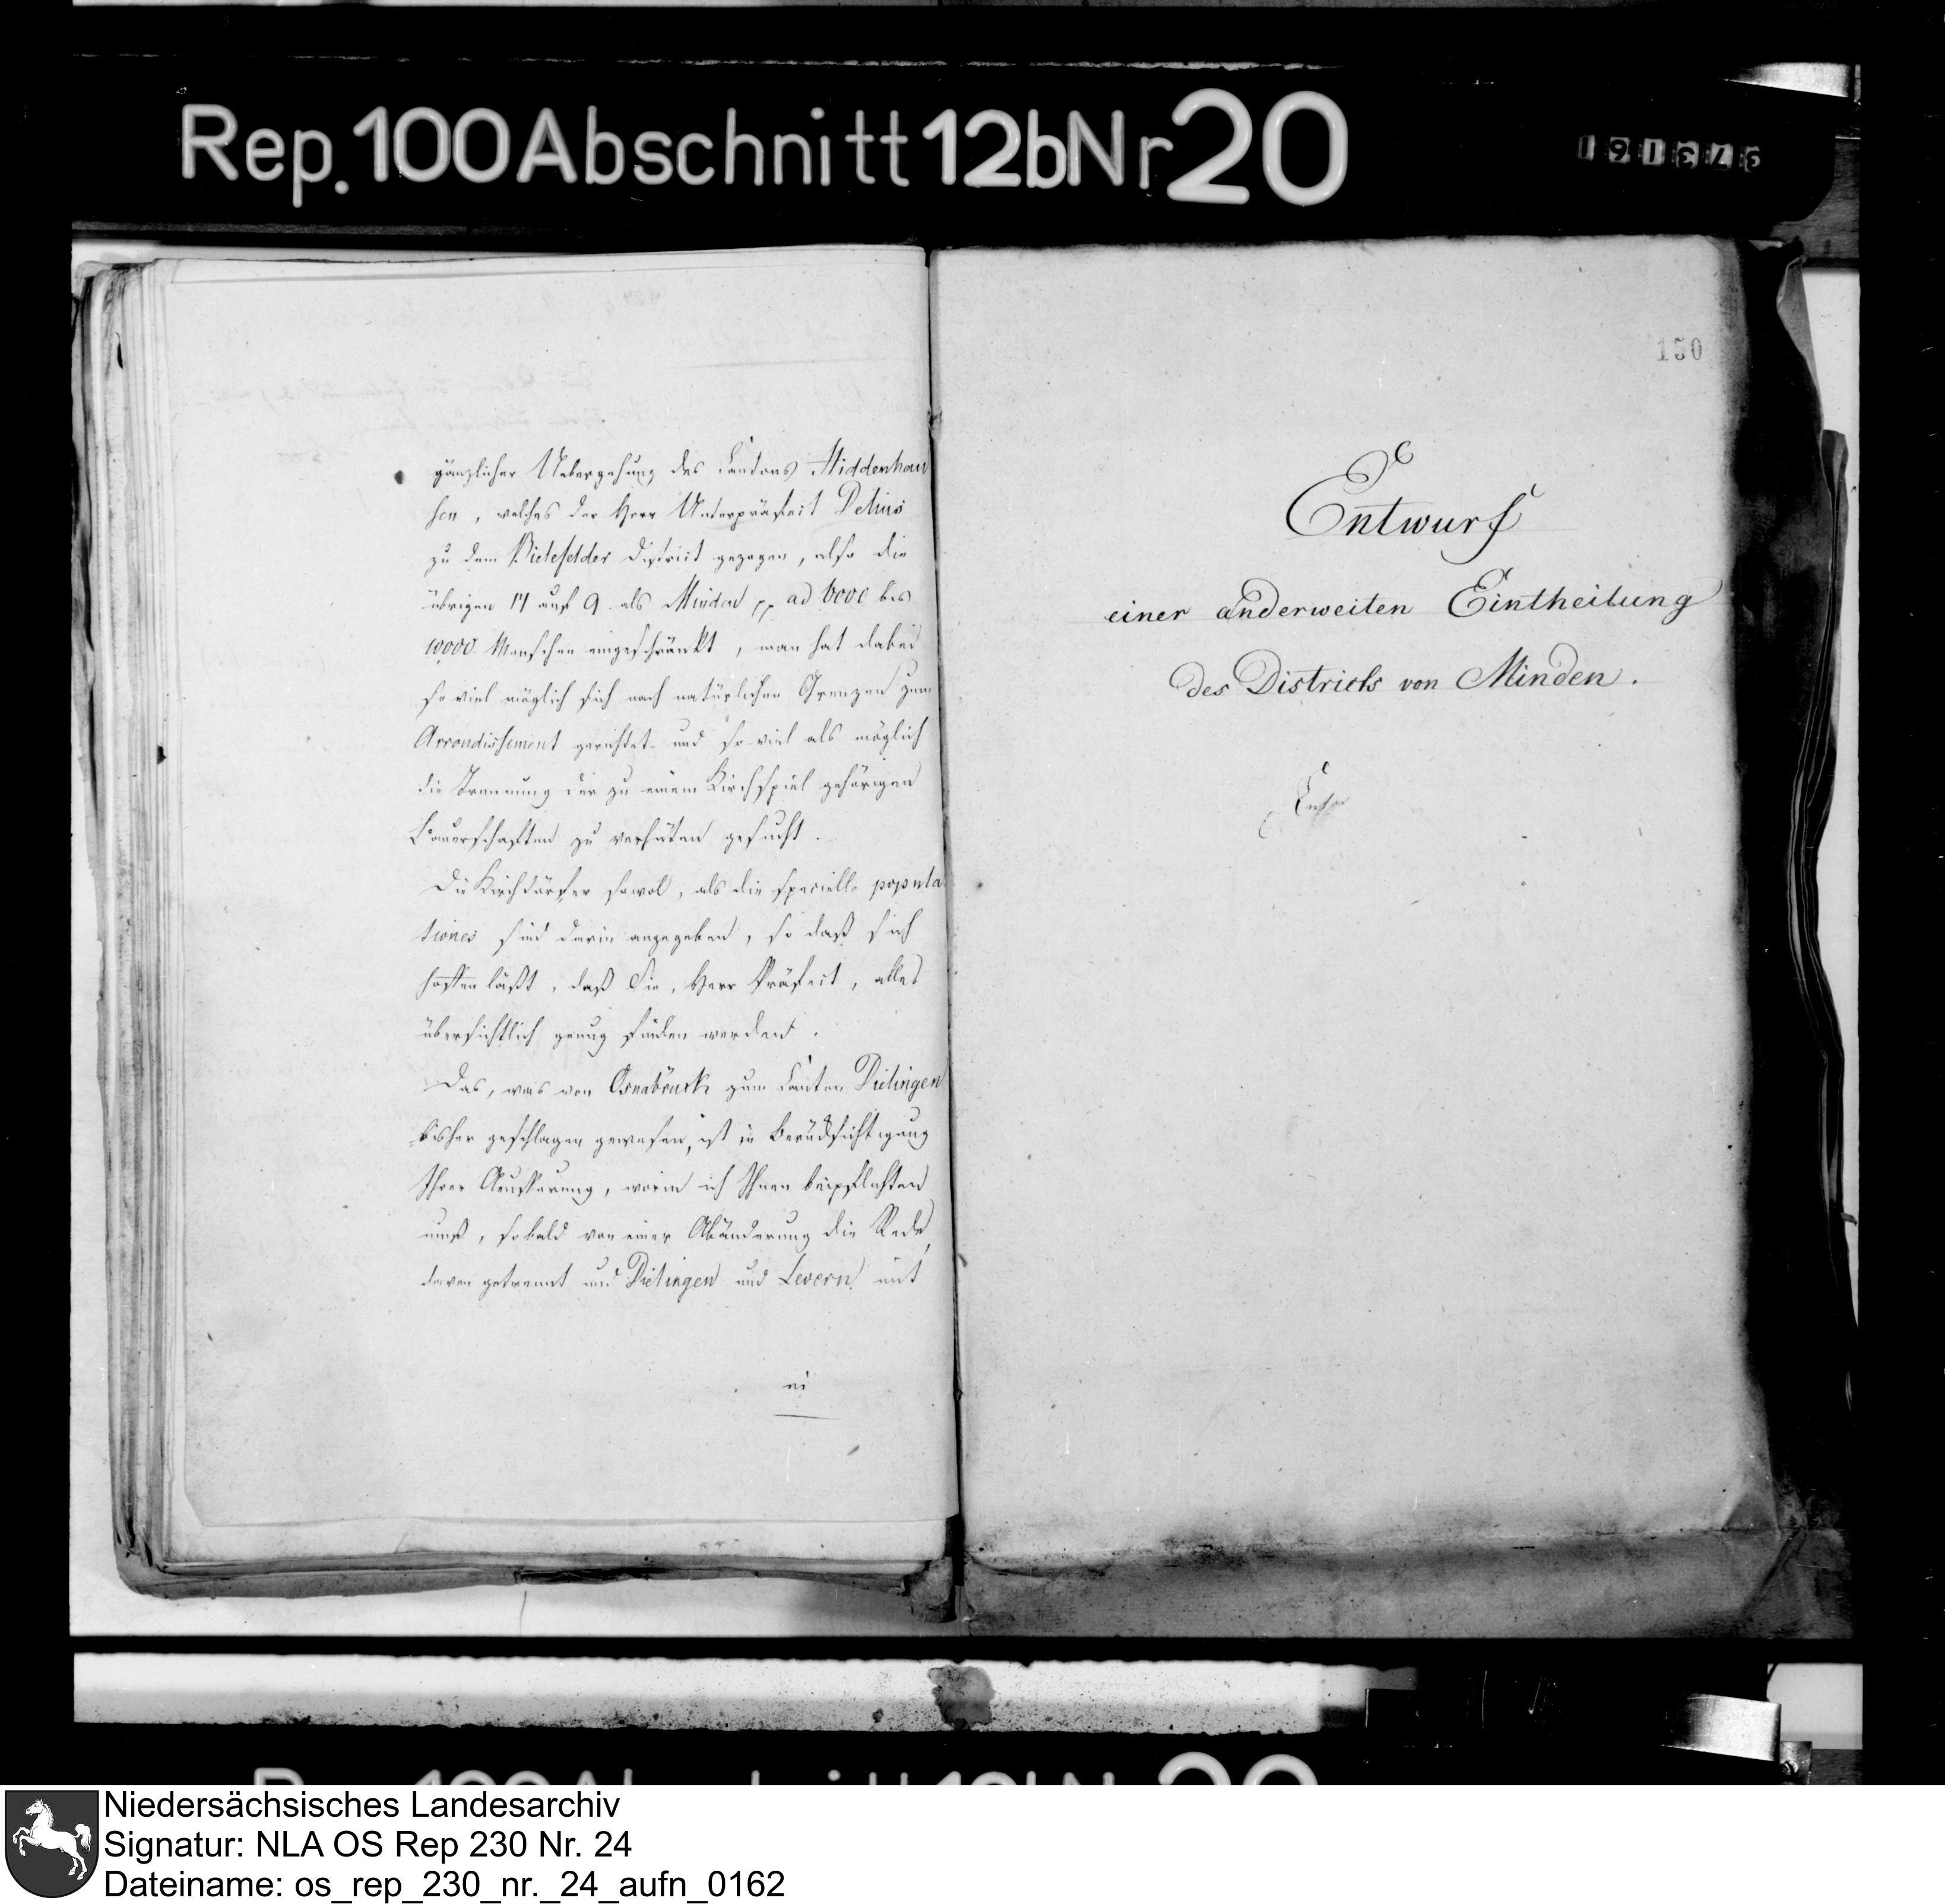 Rep. 100 Abschnitt 12b Nr 20
gänzlicher Uebergehung des Cantons Hiddenhau
sen, welches der Herr Unterpräfect Delius
zu dem Bielefelder District gezogen, also die
übrigen 14 auf 9 als Minden pp ad 6000 bis
10000 Menschen eingeschränkt, man hat dabei
so viel möglich sich nach natürlichen Grenzen zum
Arrondissement gerichtet und so viel als möglich
die Trennung der zu einem Kirchspiel gehörigen
Bauerschaften zu verhüten gesucht.
Die Kirchdörfer sowol, als die specielle popula
tiones sind darin angegeben, so daß sich
hoffen läßt, daß Sie, Herr Präfect, alles
übersichtlich genug finden werden.
Das, was von Osnabrück zum Canton Dielingen
bisher geschlagen gewesen, ist in Berücksichtigung
Ihrer Aeusserung, worin ich Ihnen beipflichten
muß, sobald von einer Abänderung die Rede,
davon getrennt und Dielingen und Levern mit
150
Entwurf
einer anderweiten Eintheilung
des Districts von Minden.
Niedersächsisches Landesarchiv
Signatur: NLA OS Rep 230 Nr. 24
Dateiname: os_rep_230_nr._24_aufn_0162